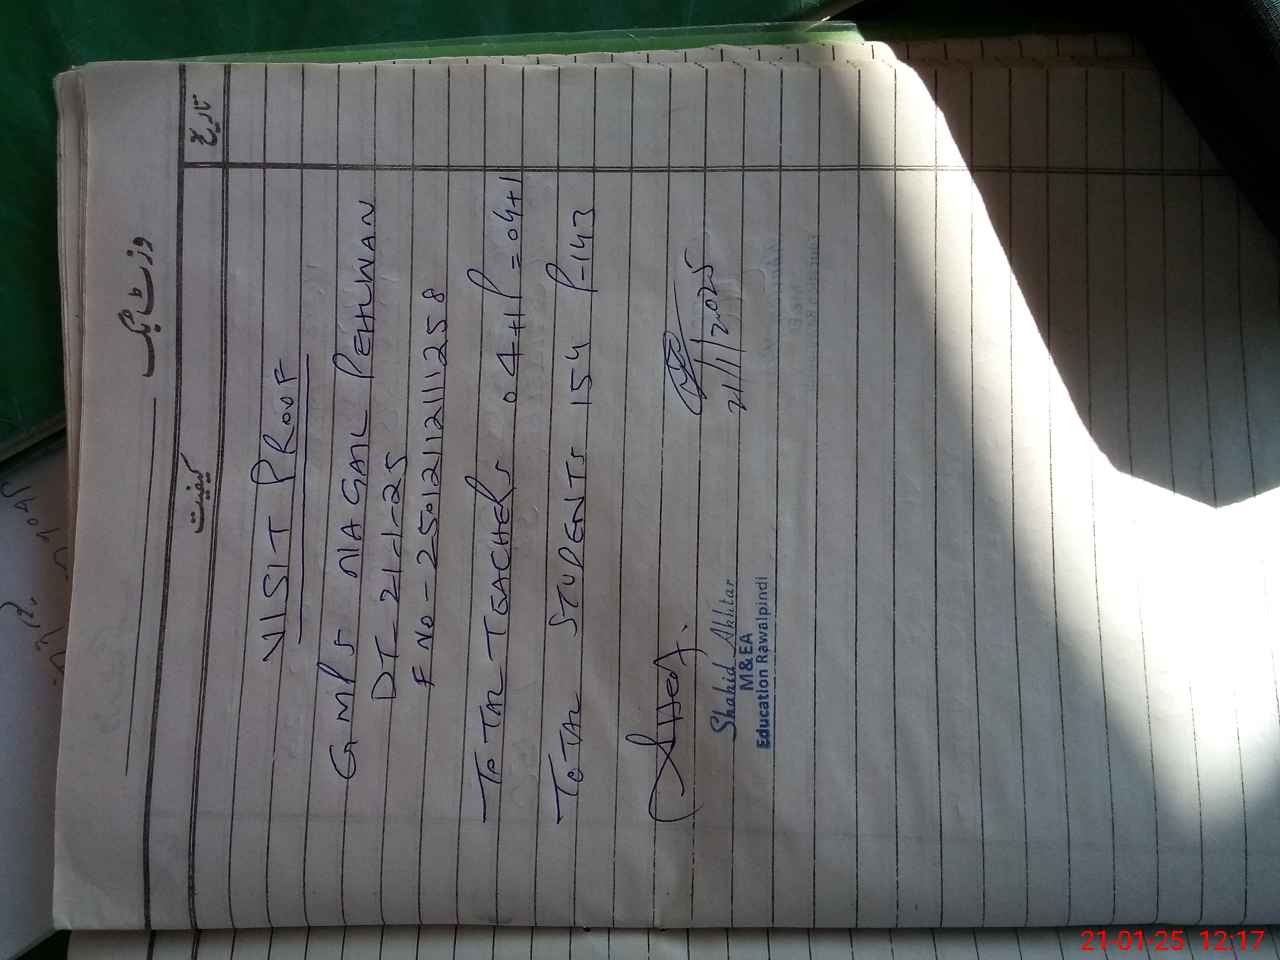 وزٹ بک
تاریخ
کیفیت
VISIT PROOF
GMPS NIA GAIL PEHLWAN
DT- 21-1-25
F NO- 25012112111258
TOTAL TEACHERS 04+1 P=04+1
TOTAL STUDENTS 154 P-143
21/1/2025
Shahid Akhtar
M&EA
Education Rawalpindi
21-01-25 12:17